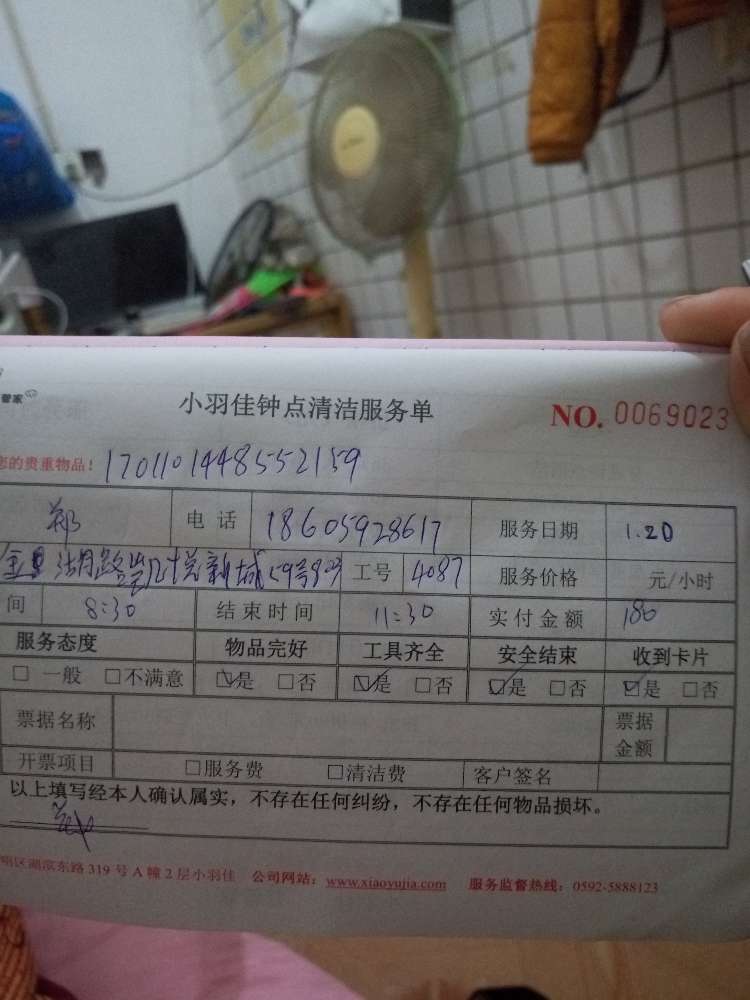 管家
小羽佳钟点清洁服务单 NO. 0069023
您的贵重物品！ 1701101448552159
郑 电话 18605928617 服务日期 1.20
新城59号 工号 4087 服务价格 元/小时
间 8:30 结束时间 11:30 实付金额 180
服务态度 物品完好 工具齐全 安全结束 收到卡片
□ 一般 □不满意 ☑是 □否 ☑是 □否 ☑是 □否 ☑是 □否
票据名称 票据金额
开票项目 □服务费 □清洁费 客户签名
以上填写经本人确认属实，不存在任何纠纷，不存在任何物品损坏。
区湖滨东路319号A幢2层小羽佳 公司网站：www.xiaoyujia.com 服务监督热线：0592-5888123